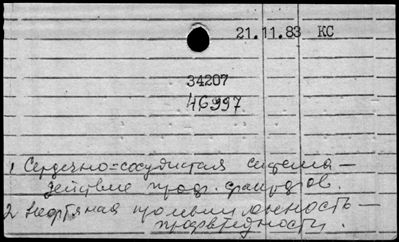 21.11.83 КС
34207
46997
1 Сердечно-сосудистая система —
действие проф. факторов.
2 Нефтяная промышленность —
профвредности.